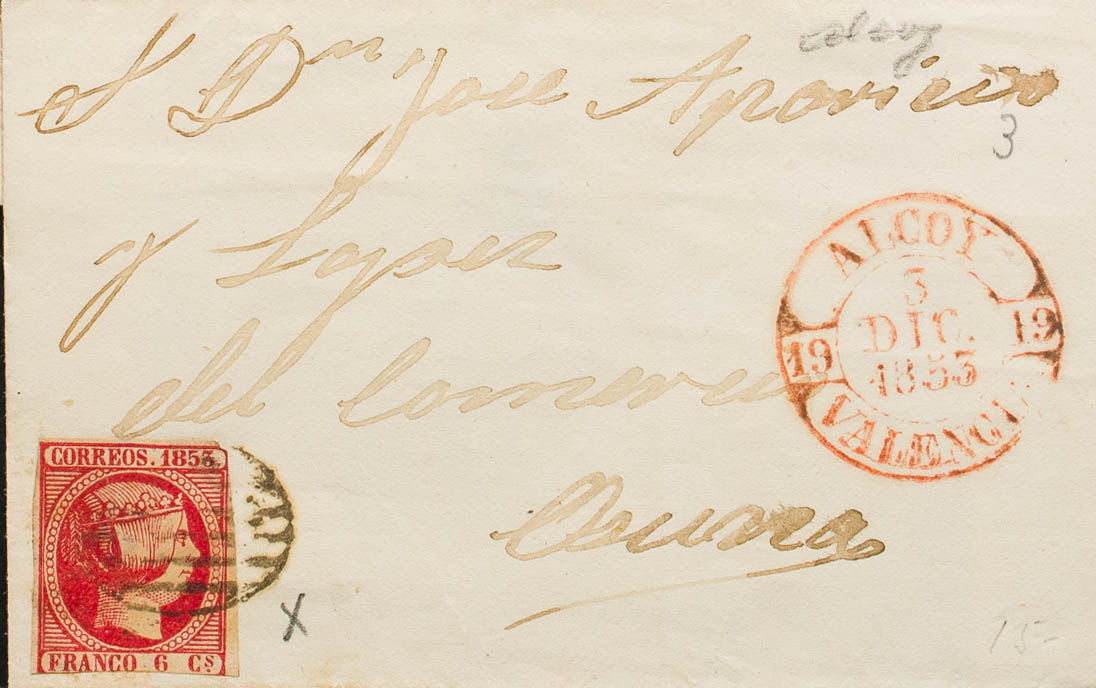 S Dn Jose Aparicio
3
y Lopez
del Comercio
Osuna
ALCOY
3
DIC.
1853
19 19
VALENCIA
CORREOS. 1853
FRANCO 6 Cs
X
15-